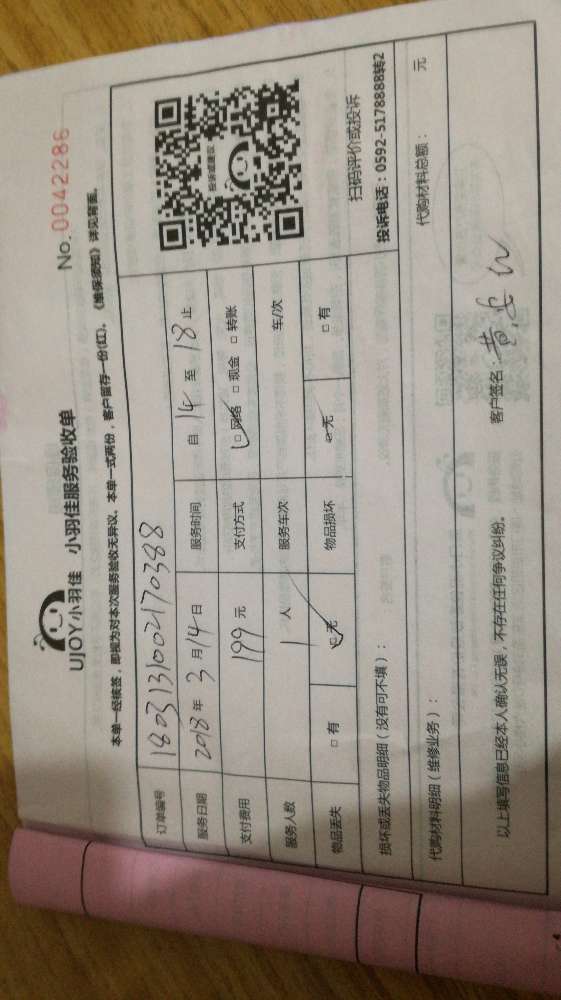 UJOY小羽佳 小羽佳服务验收单
No.0042286
本单一经核签，即视为对本次服务验收无异议。本单一式两份，客户留存一份(红)，《维保须知》详见背面。
订单编号 1803131002170388
服务日期 2018年3月14日 服务时间 自 14 至 18 止
支付费用 199 元 支付方式 □网络 □现金 □转账
服务人数 1 人 服务车次 车/次
物品丢失 □有 □无 物品损坏 □无 □有
投诉或建议
扫码评价或投诉
投诉电话：0592-5178888转2
损坏或丢失物品明细（没有可不填）：
代购材料明细（维修业务）： 代购材料总额： 元
以上填写信息已经本人确认无误，不存在任何争议纠纷。 客户签名：黄